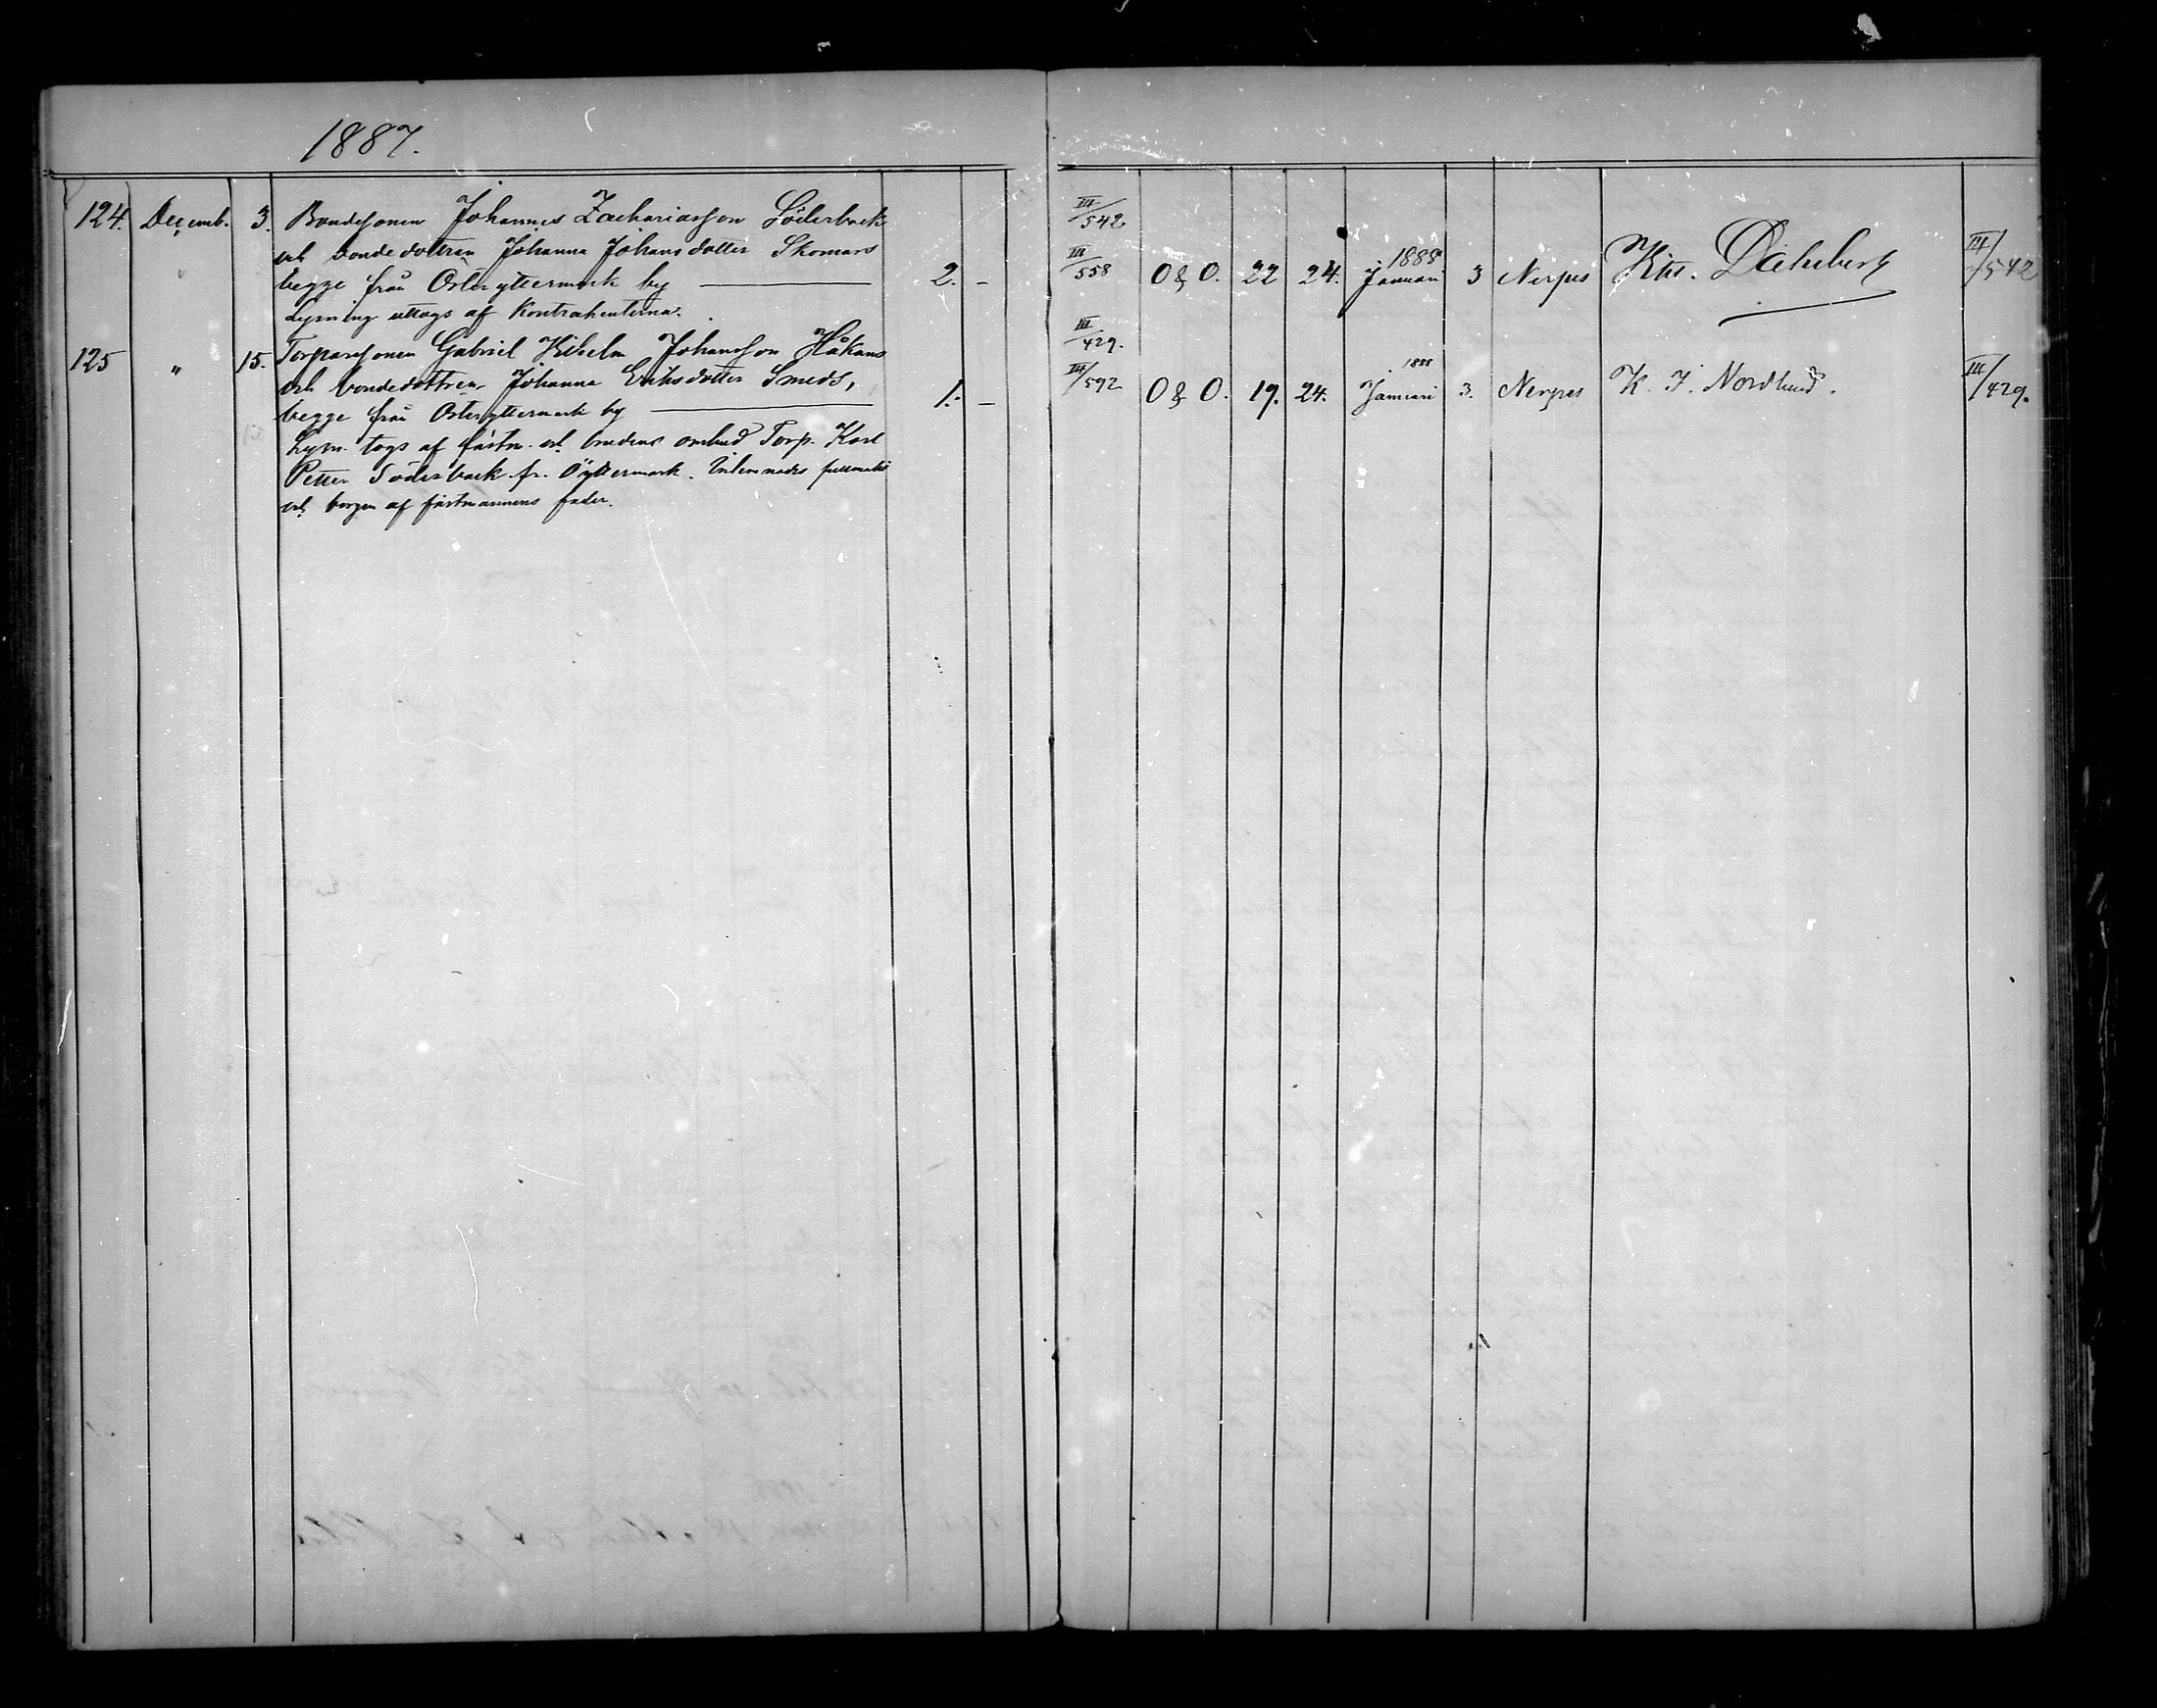 1887.
124. Decemb. 3. Bondesonen Johannes Zachariasson Söderback
och bondedottren Johanna Johansdotter Skomars
begge från Österyttermark by — 2. -
Lysning uttogs af Kontrahenterna.
125 " 15. Torparesonen Gabriel Wilhelm Johansson Håkans
och bondedottren Johanna Eriksdotter Smeds,
begge från Österyttermark by — 1. -
Lysn. togs af fästm. och brudens ombud Torp. Karl
Petter Söderback fr. Öyttermark. Inlemnades fullmakt
och borgen af fästmannens fader.
III/542
III/558 O & O. 22 24. 1888 Januari 3 Nerpes III/542
III/429.
III/592 O & O. 19. 24. 1888 Januari 3. Nerpes K. J. Nordlund. III/429.